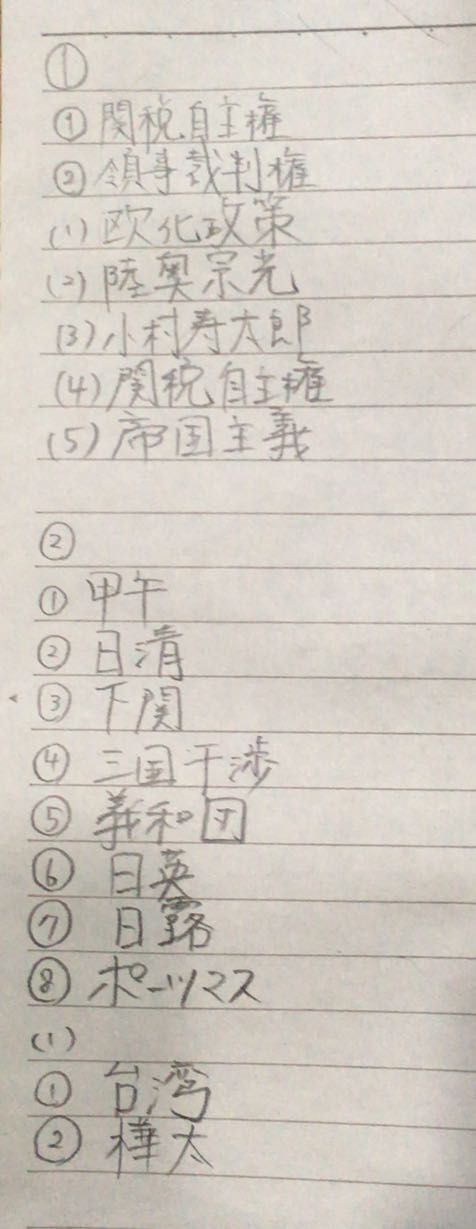 ①
①関税自主権
②領事裁判権
(1)欧化政策
(2)陸奥宗光
(3)小村寿太郎
(4)関税自主権
(5)帝国主義
②
①甲午
②日清
③下関
④三国干渉
⑤義和団
⑥日英
⑦日露
⑧ポーツマス
(1)
①台湾
②樺太